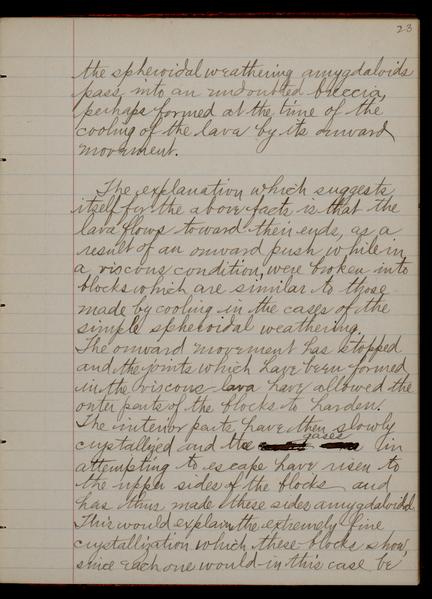 23
the spheroidal weathering amygdaloids
pass into an undoubted breccia,
perhaps formed at the time of the
cooling of the lava by its onward
movement.
The explanation which suggests
itself for the above facts is that the
lava flows toward their ends, as a
result of an onward push while in
a viscous condition, were broken into
blocks which are similar to those
made by cooling in the cases of the
simple spheroidal weathering.
The onward movement has stopped
and the joints which have been formed
in the viscous lava have allowed the
outer parts of the blocks to harden.
The interior parts have then slowly
crystallized and the gases in
attempting to escape have risen to
the upper sides of the blocks and
has thus made these sides amygdaloidal.
This would explain the extremely fine
crystallization which these blocks show,
since each one would in this case be